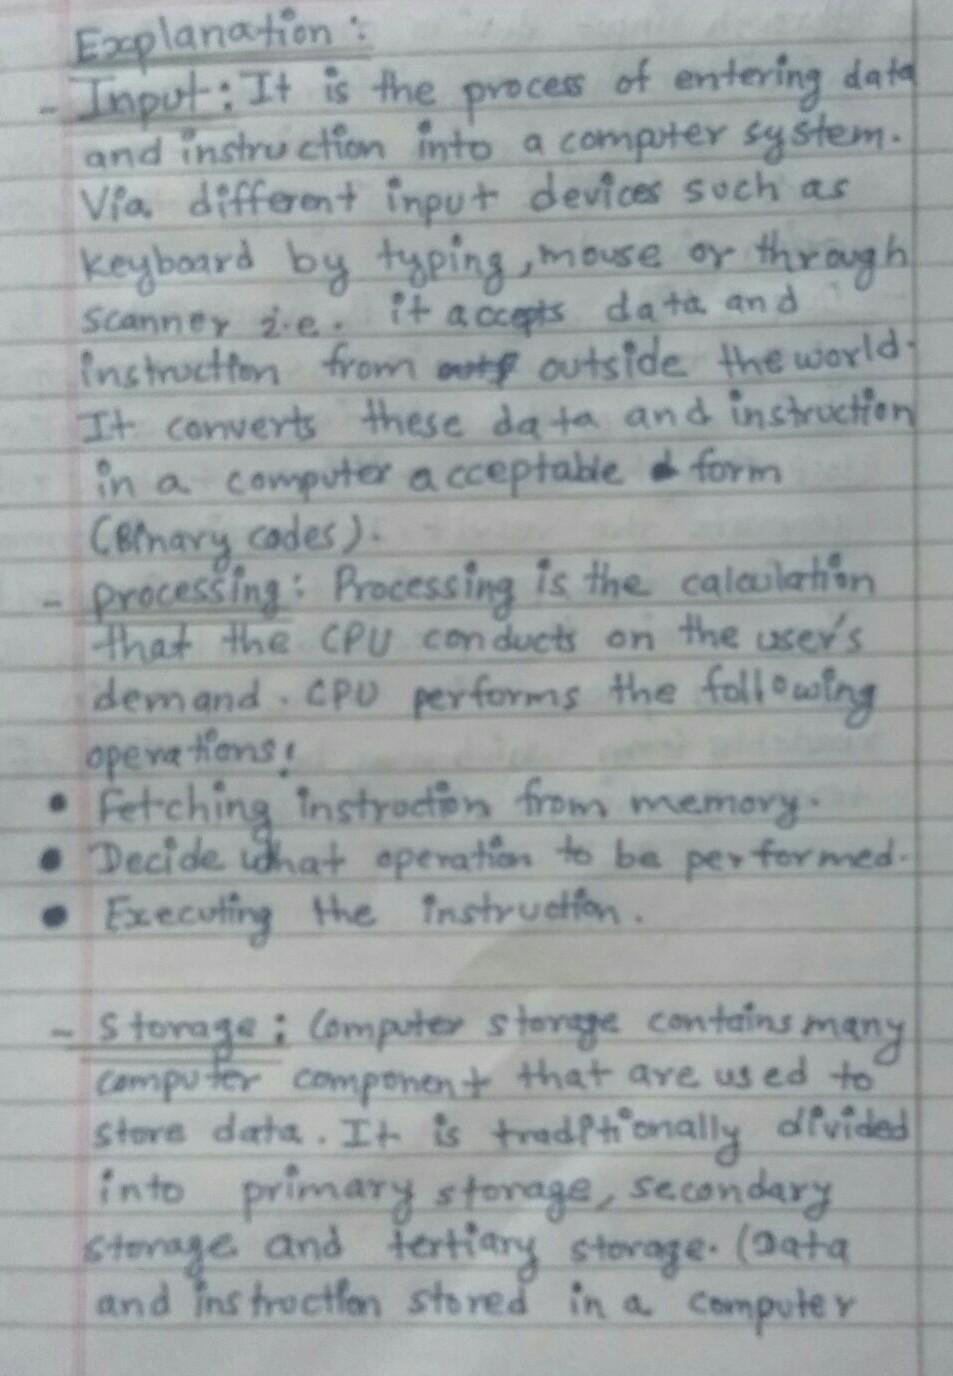 Explanation :
- Input : It is the process of entering data
and instruction into a computer system.
Via different input devices such as
keyboard by typing, mouse or through
scanner i.e. it accepts data and
instruction from outside the world.
It converts these data and instruction
in a computer acceptable form
(Binary codes).
- processing : Processing is the calculation
that the CPU conducts on the user's
demand. CPU performs the following
operations:
• Fetching instruction from memory.
• Decide what operation to be performed.
• Executing the instruction.
- Storage : Computer storage contains many
computer component that are used to
store data. It is traditionally divided
into primary storage, secondary
storage and tertiary storage. (Data
and instruction stored in a computer